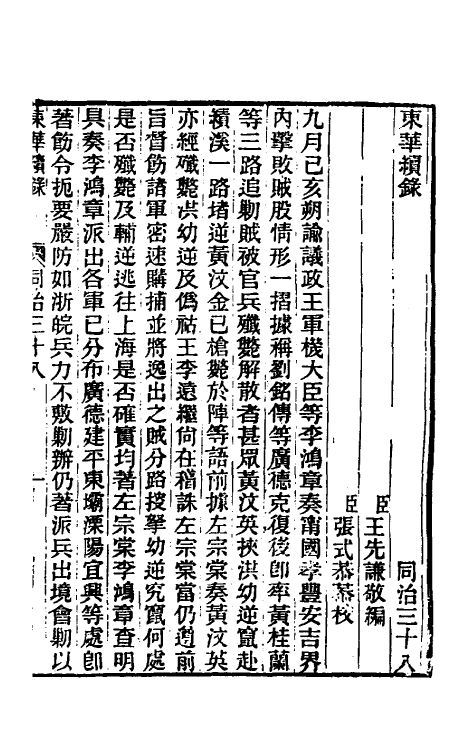 東華續錄 同治三十八
臣王先謙敬編
臣張式恭恭校
九月己亥朔諭議政王軍機大臣等李鴻章奏甯國孝豐安吉界
內擊敗賊股情形一摺據稱劉銘傳等廣德克復後卽率黃桂蘭
等三路追勦賊被官兵殲斃解散者甚眾黃汶英挾洪幼逆竄赴
績溪一路堵逆黃汶金已槍斃於陣等語前據左宗棠奏黃汶英
亦經殲斃洪幼逆及僞祜王李遠繼尙在稽誅左宗棠當仍遵前
旨督飭諸軍密速購捕並將逸出之賊分路搜拏幼逆究竄何處
是否殲斃及輔逆逃往上海是否確實均著左宗棠李鴻章查明
具奏李鴻章派出各軍已分布廣德建平東壩溧陽宜興等處卽
著飭令扼要嚴防如浙皖兵力不敷勦辦仍著派兵出境會勦以
東華續錄 同治三十八 一